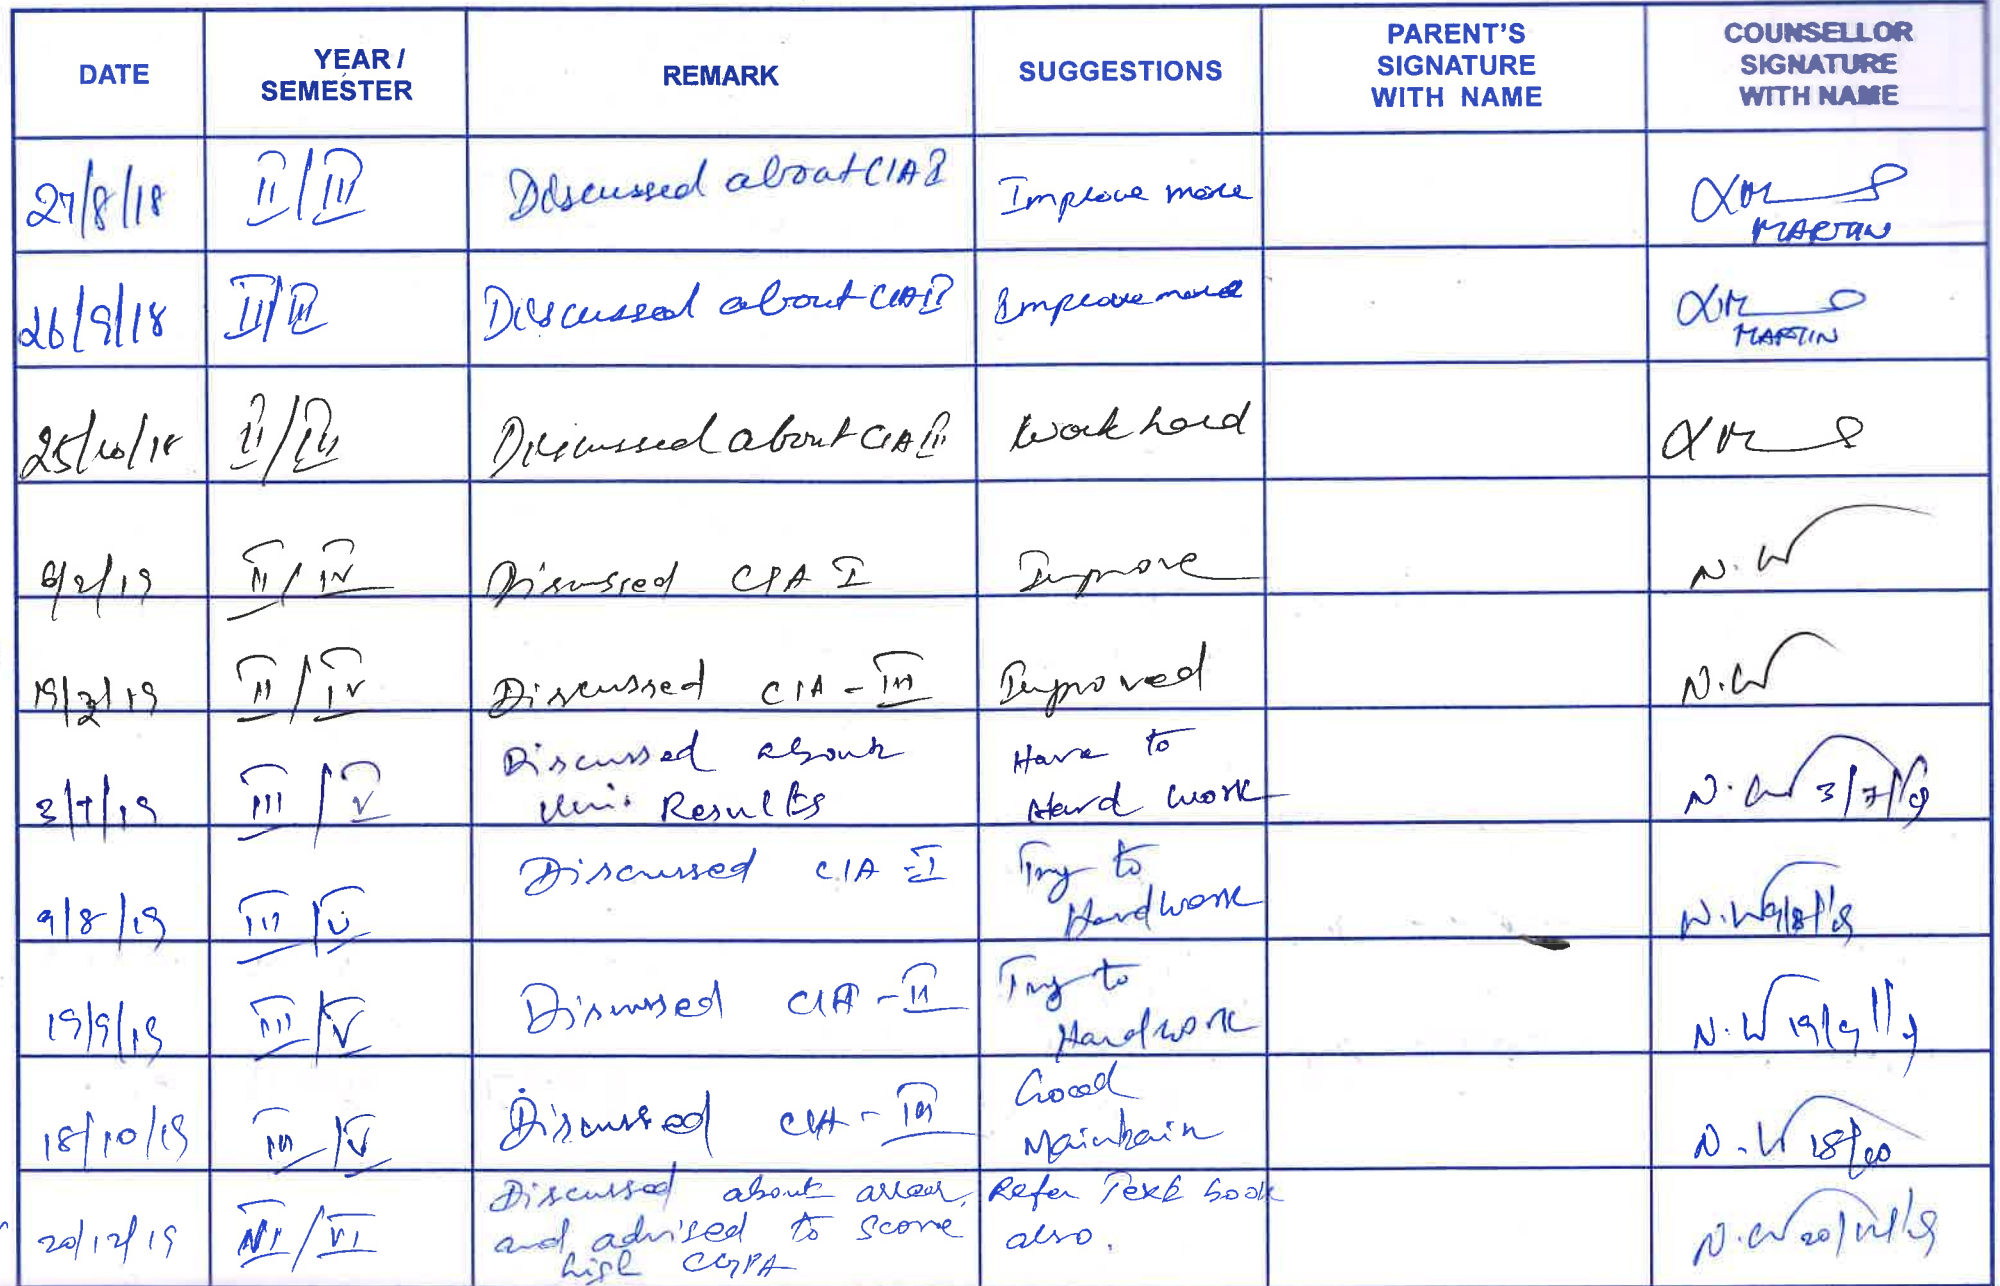 DATE YEAR / SEMESTER REMARK SUGGESTIONS PARENT'S SIGNATURE WITH NAME COUNSELLOR SIGNATURE WITH NAME
27/8/18 II/III Discussed about CIA I Improve more MARTIN
26/9/18 II/III Discussed about CIA II Improve more MARTIN
25/10/18 II/III Discussed about CIA III Work hard
6/2/19 II/IV Disussed CIA I Improve N.
19/3/19 II/IV Discussed CIA-III Improved N.
3/7/19 III/V Discussed about Results Have to Hard work N. 3/7/19
9/8/19 III/V Discussed CIA-I Try to Hardwork N. 9/8/19
19/9/19 III/V Disussed CIA-II Try to Hardwork N. 19/9/19
18/10/19 III/V Discussed CIA-III Good Maintain N. 18/10
20/12/19 /VI Discussed about arrear, and advised to score high CGPA Refer Text book also. N. 20/12/19